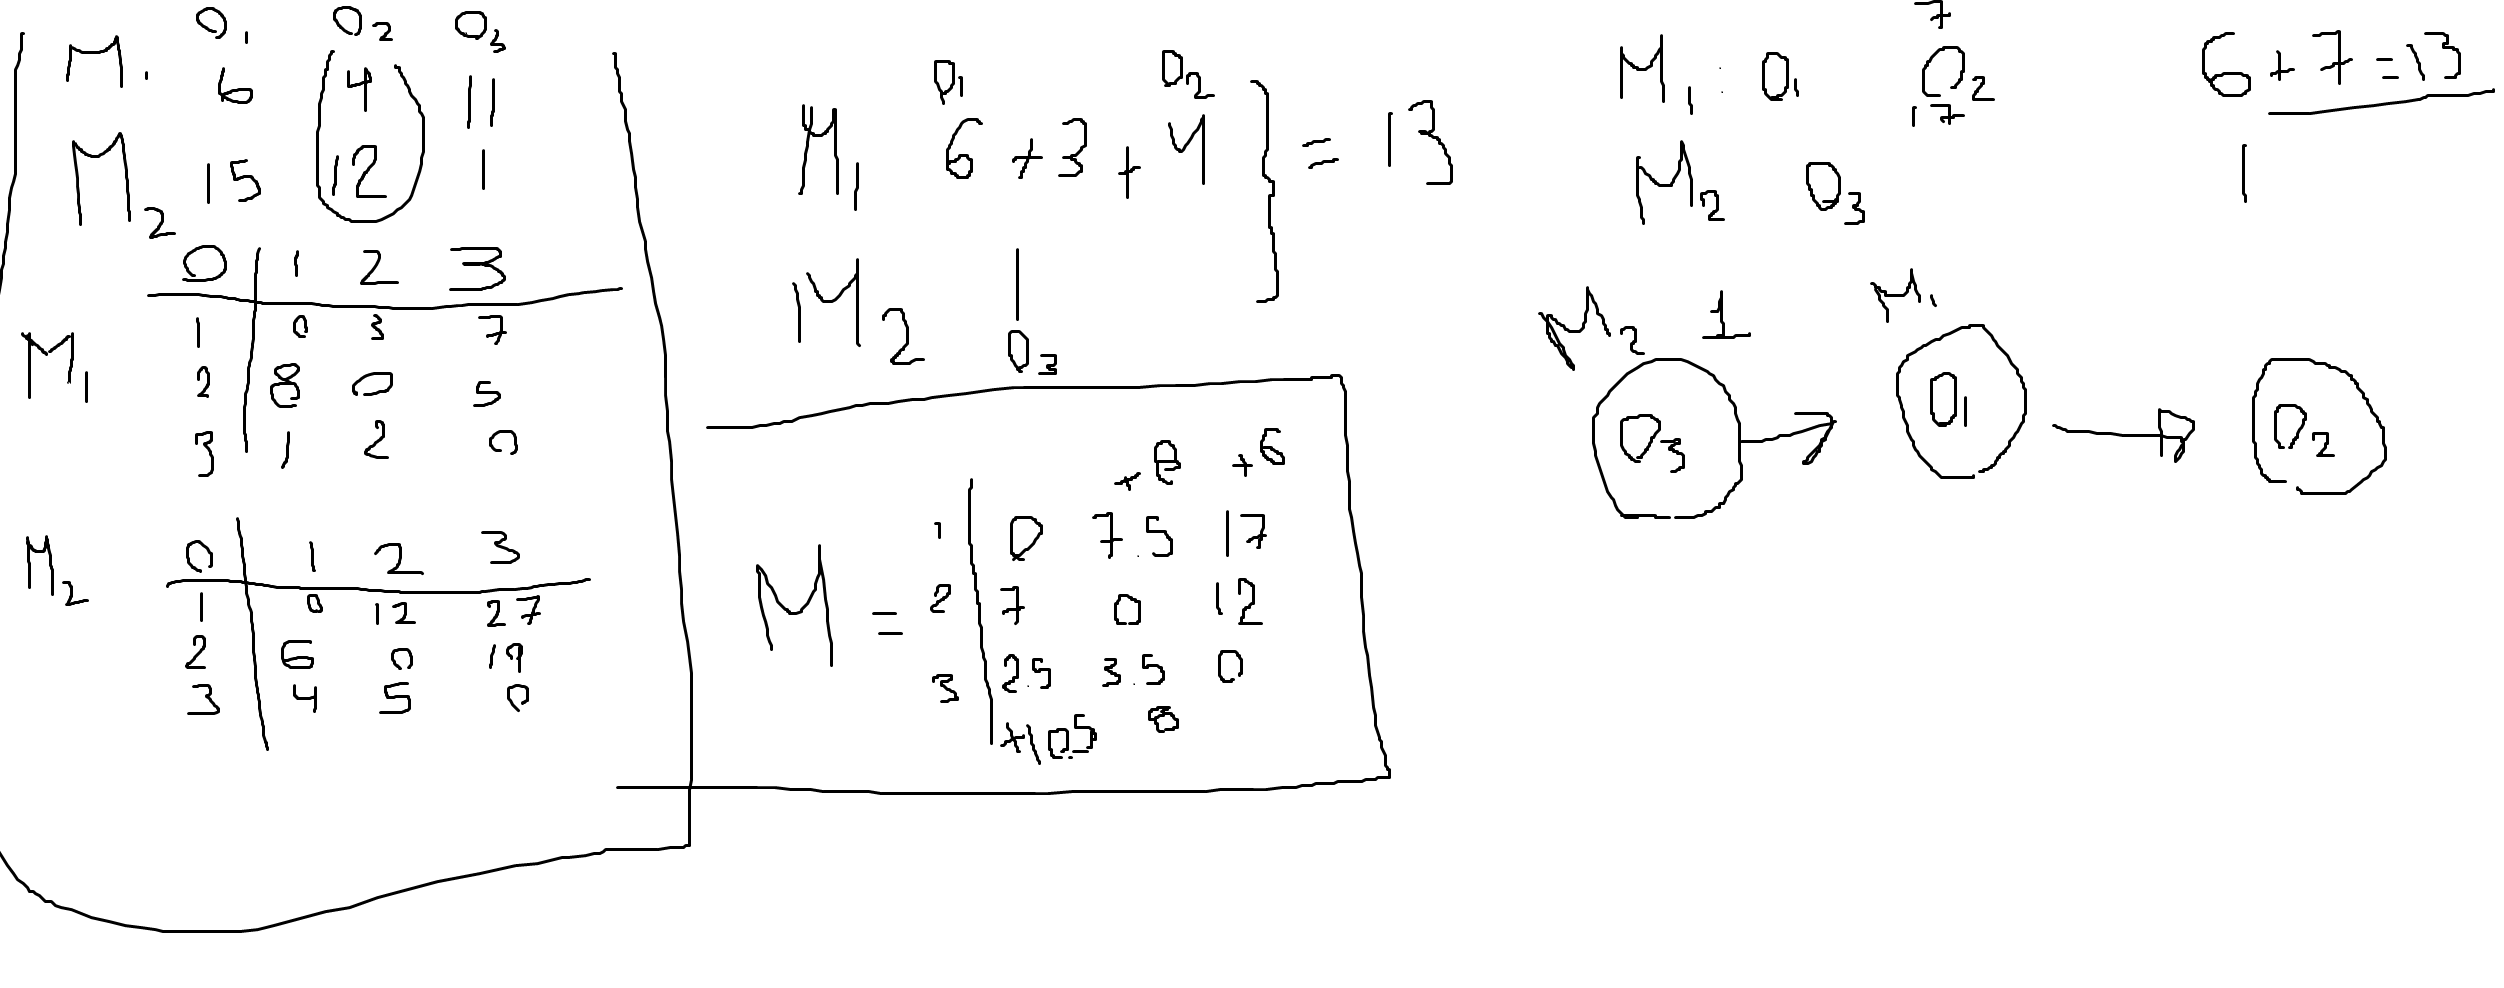 O1 O2 O3
M1 6 4 11
M2 15 12 1
0 1 2 3
M1
1 0 3 7
2 8 0 5
3 1 2 0
M2
0 1 2 3
1 0 12 27
2 6 0 19
3 4 5 0
O1 O2
M1 6 + 3 + 4 = 13
M2 1
O3
+6
M =
1 0 7.5 17
2 7 0 12
3 2.5 3.5 0
7
M1 : O1 O2 6 + 7 = 13
17
M2 O3 1
M2 1 M1
O3 O1 O2